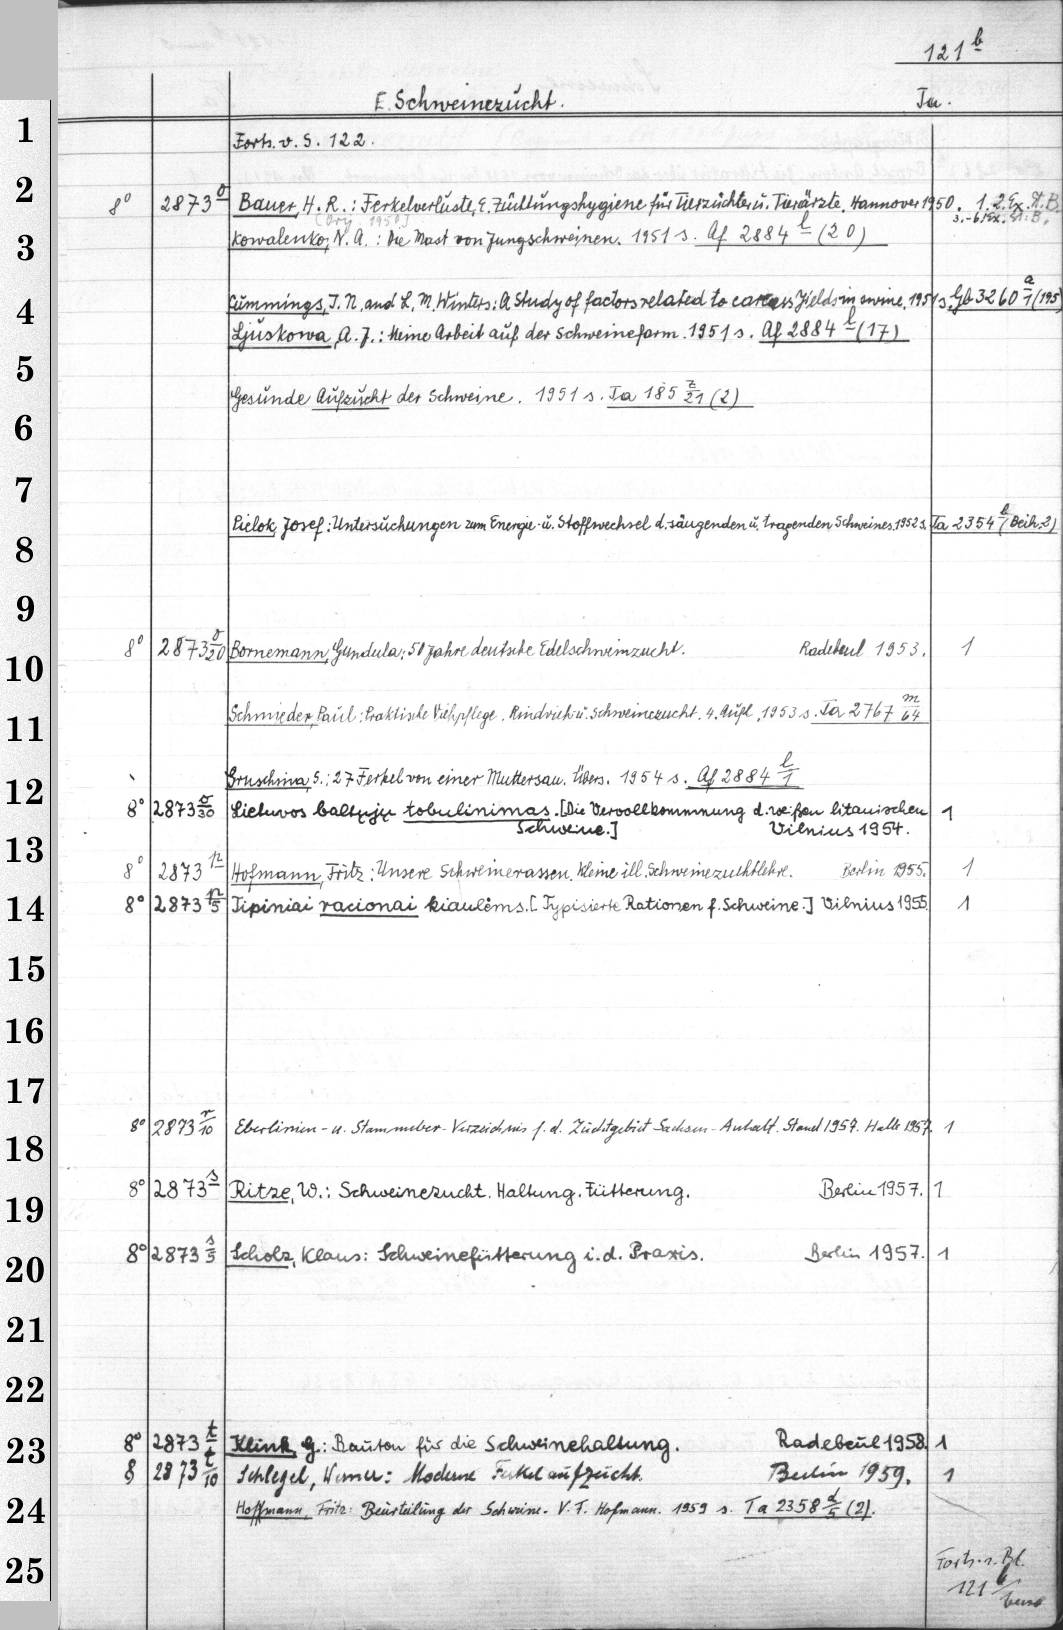 121 b
E. Schweinezucht. Ta.
1
Forts. v. S. 122.
2
8° 2873 o Bauer, H. R.: Ferkelverluste, e. Züchtungshygiene für Tierzüchter u. Tierärzte. Hannover 1950. 1. 2. Ex. St. B.
[Orig. 1950] 3.-6. Ex. St. B.
3
Kowalenko, N. A.: Die Mast von Jungschweinen. 1951 s. Af 2884 l (20)
4
Cummings, J. N. and L. M. Winters: A Study of factors related to carcass Yields in swine. 1951 s. Gb 3260 a/1 (195)
Ljuskowa, A. J.: Meine Arbeit auf der Schweinefarm. 1951 s. Af 2884 l (17)
5
Gesunde Aufzucht der Schweine. 1951 s. Ta 185 z/21 (2)
6
7
Pielok, Josef: Untersuchungen zum Energie- u. Stoffwechsel d. säugenden u. tragenden Schweines. 1952 s. Ta 2354 b (Beih. 2)
8
9
8° 2873 o/20 Bornemann, Gundula: 50 Jahre deutsche Edelschweinzucht. Radebeul 1953. 1
10
Schmieder, Paul: Praktische Viehpflege. Rindvieh- u. Schweinezucht. 4. Aufl. 1953 s. Ta 2767 m/64
11
Gruschina, S.: 27 Ferkel von einer Muttersau. Übers. 1954 s. Af 2884 l/1
12
8° 2873 o/30 Lietuvos baltųjų tobulinimas. [Die Vervollkommnung d. weißen litauischen 1
Schweine.] Vilnius 1954.
13
8° 2873 p Hofmann, Fritz: Unsere Schweinerassen. Kleine ill. Schweinezuchtlehre. Berlin 1955. 1
14
8° 2873 p/5 Tipiniai racionai kiaulėms. [Typisierte Rationen f. Schweine.] Vilnius 1955. 1
15
16
17
8° 2873 r/10 Eberlinien- u. Stammeber-Verzeichnis f. d. Zuchtgebiet Sachsen-Anhalt. Stand 1957. Halle 1957. 1
18
8° 2873 s Ritze, W.: Schweinezucht. Haltung. Fütterung. Berlin 1957. 1
19
8° 2873 s/5 Scholz, Klaus: Schweinefütterung i. d. Praxis. Berlin 1957. 1
20
21
22
8° 2873 t Klink, G.: Bauten für die Schweinehaltung. Radebeul 1958. 1
23
8 2873 t/10 Schlegel, Werner: Moderne Ferkelaufzucht. Berlin 1959. 1
24
Hoffmann, Fritz: Beurteilung der Schweine. V. F. Hofmann. 1959 s. Ta 2358 d/5 (2).
25
Forts. s. Bl.
121 b/